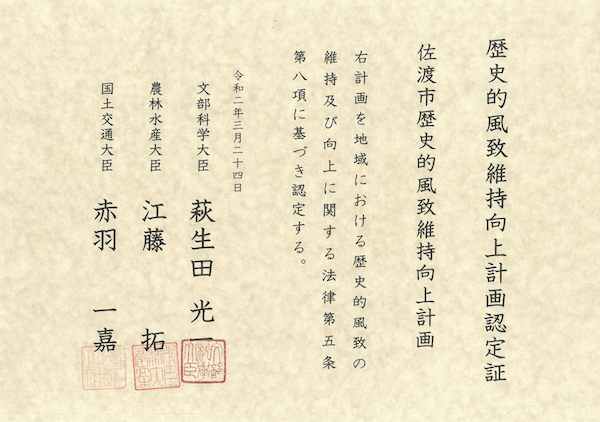 歴史的風致維持向上計画認定証
佐渡市歴史的風致維持向上計画
右計画を地域における歴史的風致の
維持及び向上に関する法律第五条
第八項に基づき認定する。
令和二年三月二十四日
文部科学大臣 萩生田 光一
農林水産大臣 江藤 拓
国土交通大臣 赤羽 一嘉